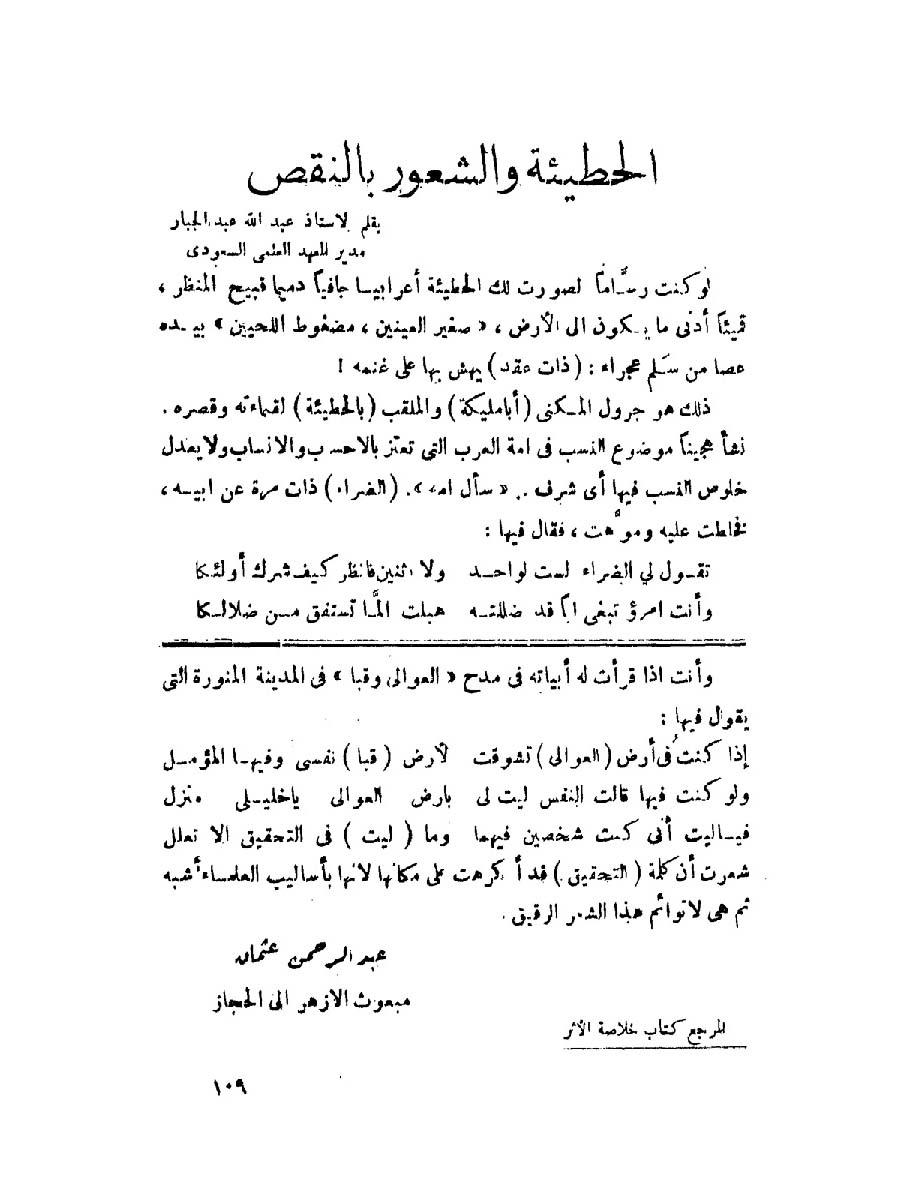 الحطيئة والشعور بالنقص
بقلم الاستاذ عبد الله عبد الجبار
مدير المعهد العلمي السعودى
لو كنت رسَّاماً لصورت لك الحطيئة أعرابيا جافياً دميما قبيح المنظر ،
قميئاً أدنى ما يكون الى الأرض ، « صغير العينين ، مضغوط اللحيين » بيده
عصا من سَلم عجراء : ( ذات عقد ) يهش بها على غنمه !
ذلك هو جرول المكنى ( أبامليكة ) والملقب ( بالحطيئة ) لقماءته وقصره .
نشأ هجيناً موضوع النسب فى امة العرب التى تعتز بالاحسب والانساب ولا يعدل
خلوص النسب فيها أى شرف .. « سأل امه » . ( الضراء ) ذات مرة عن ابيه ،
فخلطت عليه وموَّهت ، فقال فيها :
تقول لي الضراء لست لواحد ولا اثنين فانظر كيف شرك أولئكا
وأنت امرؤ تبغى اباً قد ضللته هبلت المَّا تستفق من ضلالكا
وأنت اذا قرأت له أبياته فى مدح « العوالى وقبا » فى المدينة المنورة التى
يقول فيها :
إذا كنتُ فى أرض ( العوالى ) تشوقت لأرض ( قبا ) نفسى وفيها المؤمل
ولو كنت فيها قالت النفس ليت لى بارض العوالى ياخليلى منزل
فياليت أنى كنت شخصين فيهما وما ( ليت ) فى التحقيق الا تعلل
شعرت أن كلمة ( التحقيق ) قد أكرهت على مكانها لانها بأساليب العلماء أشبه
ثم هى لاتوائم هذا الشعر الرقيق .
عبد الرحمن عثمان
مبعوث الازهر الى الحجاز
المرجع كتاب خلاصة الأثر
١٠٩